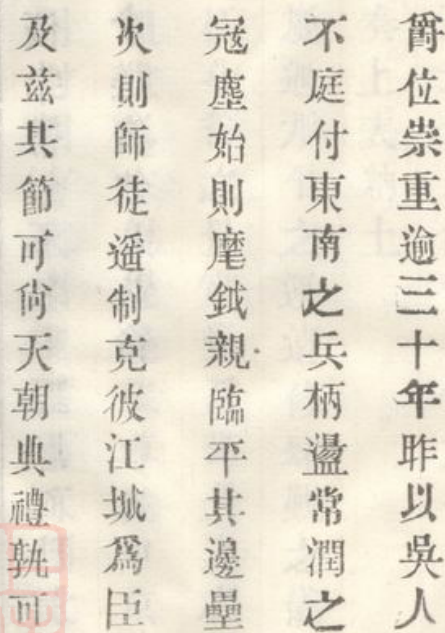 爵位崇重逾三十年昨以吳人
不庭付東南之兵柄盪常潤之
冦塵始則麾鉞親臨平其邊壘
次則師徒遥制克彼江城爲臣
及兹其節可尙天朝典禮孰可